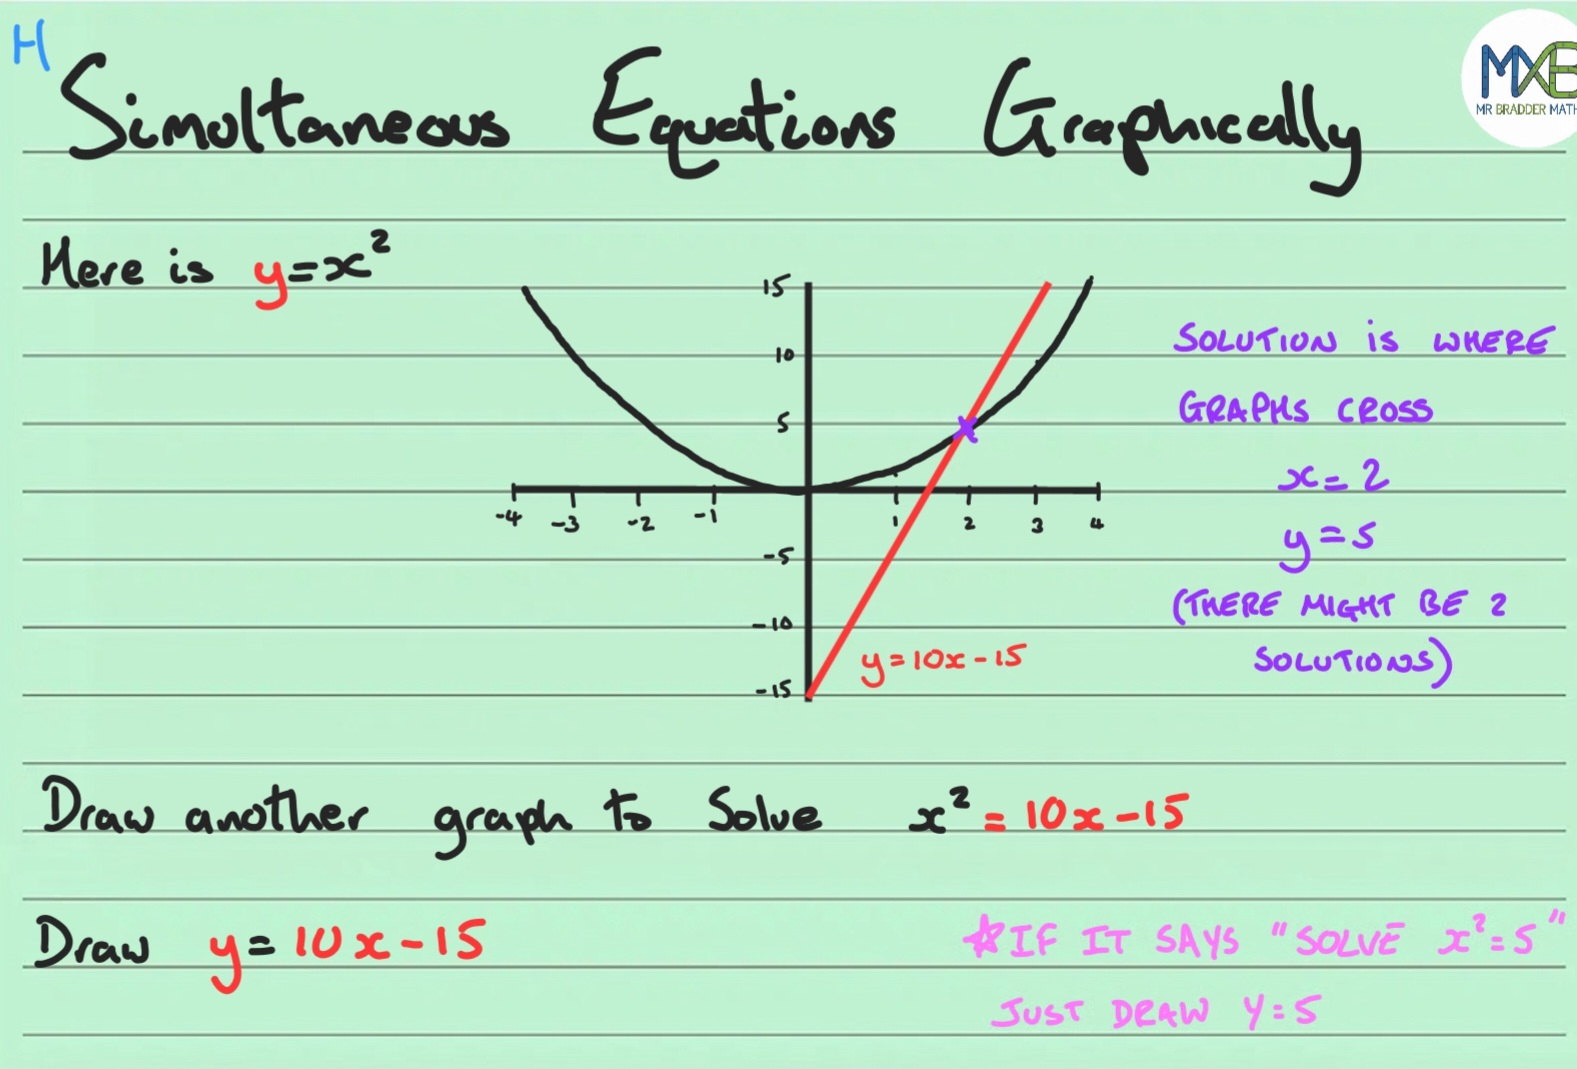 H
Simultaneous Equations Graphically
MXB
MR BRADDER MATH
Here is y=x²
15
10
5
-4 -3 -2 -1 1 2 3 4
-5
-10
-15
y=10x-15
SOLUTION is WHERE
GRAPHS CROSS
x=2
y=5
(THERE MIGHT BE 2
SOLUTIONS)
Draw another graph to Solve x²=10x-15
Draw y=10x-15
*IF IT SAYS "SOLVE x²=5"
JUST DRAW Y=5